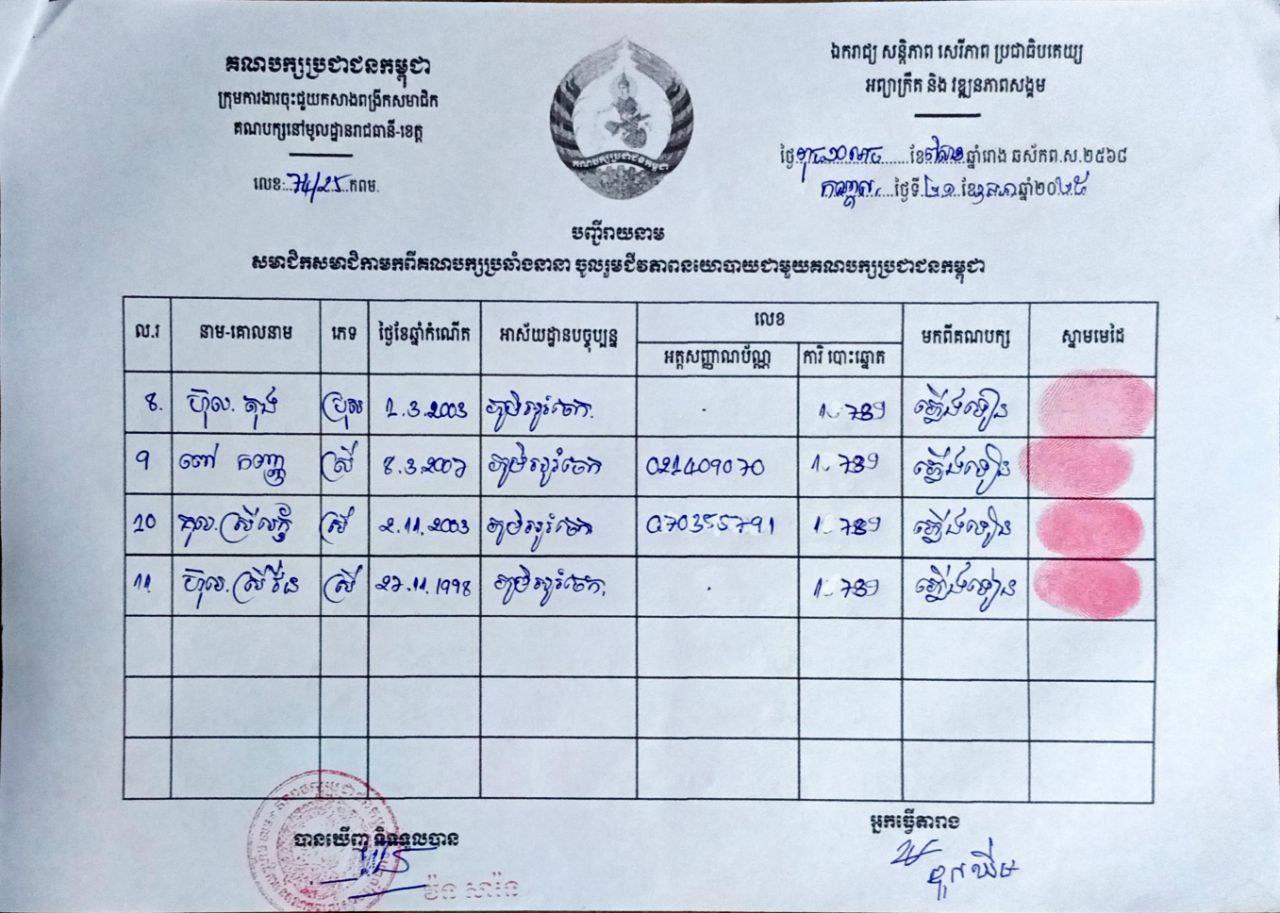 គណបក្សប្រជាជនកម្ពុជា
ក្រុមការងារចុះជួយកសាងពង្រីកសមាជិក
គណបក្សនៅមូលដ្ឋានរាជធានី-ខេត្ត
លេខ:..74/25..កពម.
គណបក្សប្រជាជនកម្ពុជា
ឯករាជ្យ សន្តិភាព សេរីភាព ប្រជាធិបតេយ្យ
អព្យាក្រឹត និង វឌ្ឍនភាពសង្គម
ថ្ងៃ ខែ ឆ្នាំរោង ឆស័កព.ស.២៥៦៨
កណ្តាល ថ្ងៃទី ២១ ខែ ឆ្នាំ២០២៥
បញ្ជីរាយនាម
សមាជិកសមាជិកាមកពីគណបក្សប្រឆាំងនានា ចូលរួមជីវភាពនយោបាយជាមួយគណបក្សប្រជាជនកម្ពុជា
ល.រ នាម-គោលនាម ភេទ ថ្ងៃខែឆ្នាំកំណើត អាស័យដ្ឋានបច្ចុប្បន្ន លេខ មកពីគណបក្ស ស្នាមមេដៃ
អត្តសញ្ញាណប័ណ្ណ ការិ បោះឆ្នោត
8. ហ៊ុល. តុង ប្រុស 1.3.2003 ភូមិ 789 ភ្លើងទៀន
9 ពៅ កញ្ញា ស្រី 8.3.2007 ភូមិ 021409070 789 ភ្លើងទៀន
10 ស្រីលក្ខ័ ស្រី 2.11.2003 ភូមិ 070355791 789 ភ្លើងទៀន
11. ហ៊ុល. ស្រី 27.11.1998 ភូមិ 789 ភ្លើងទៀន
បានឃើញ និងទទួលបាន
អ្នកធ្វើតារាង
ម៉ន សារ៉ន
ឃឹម